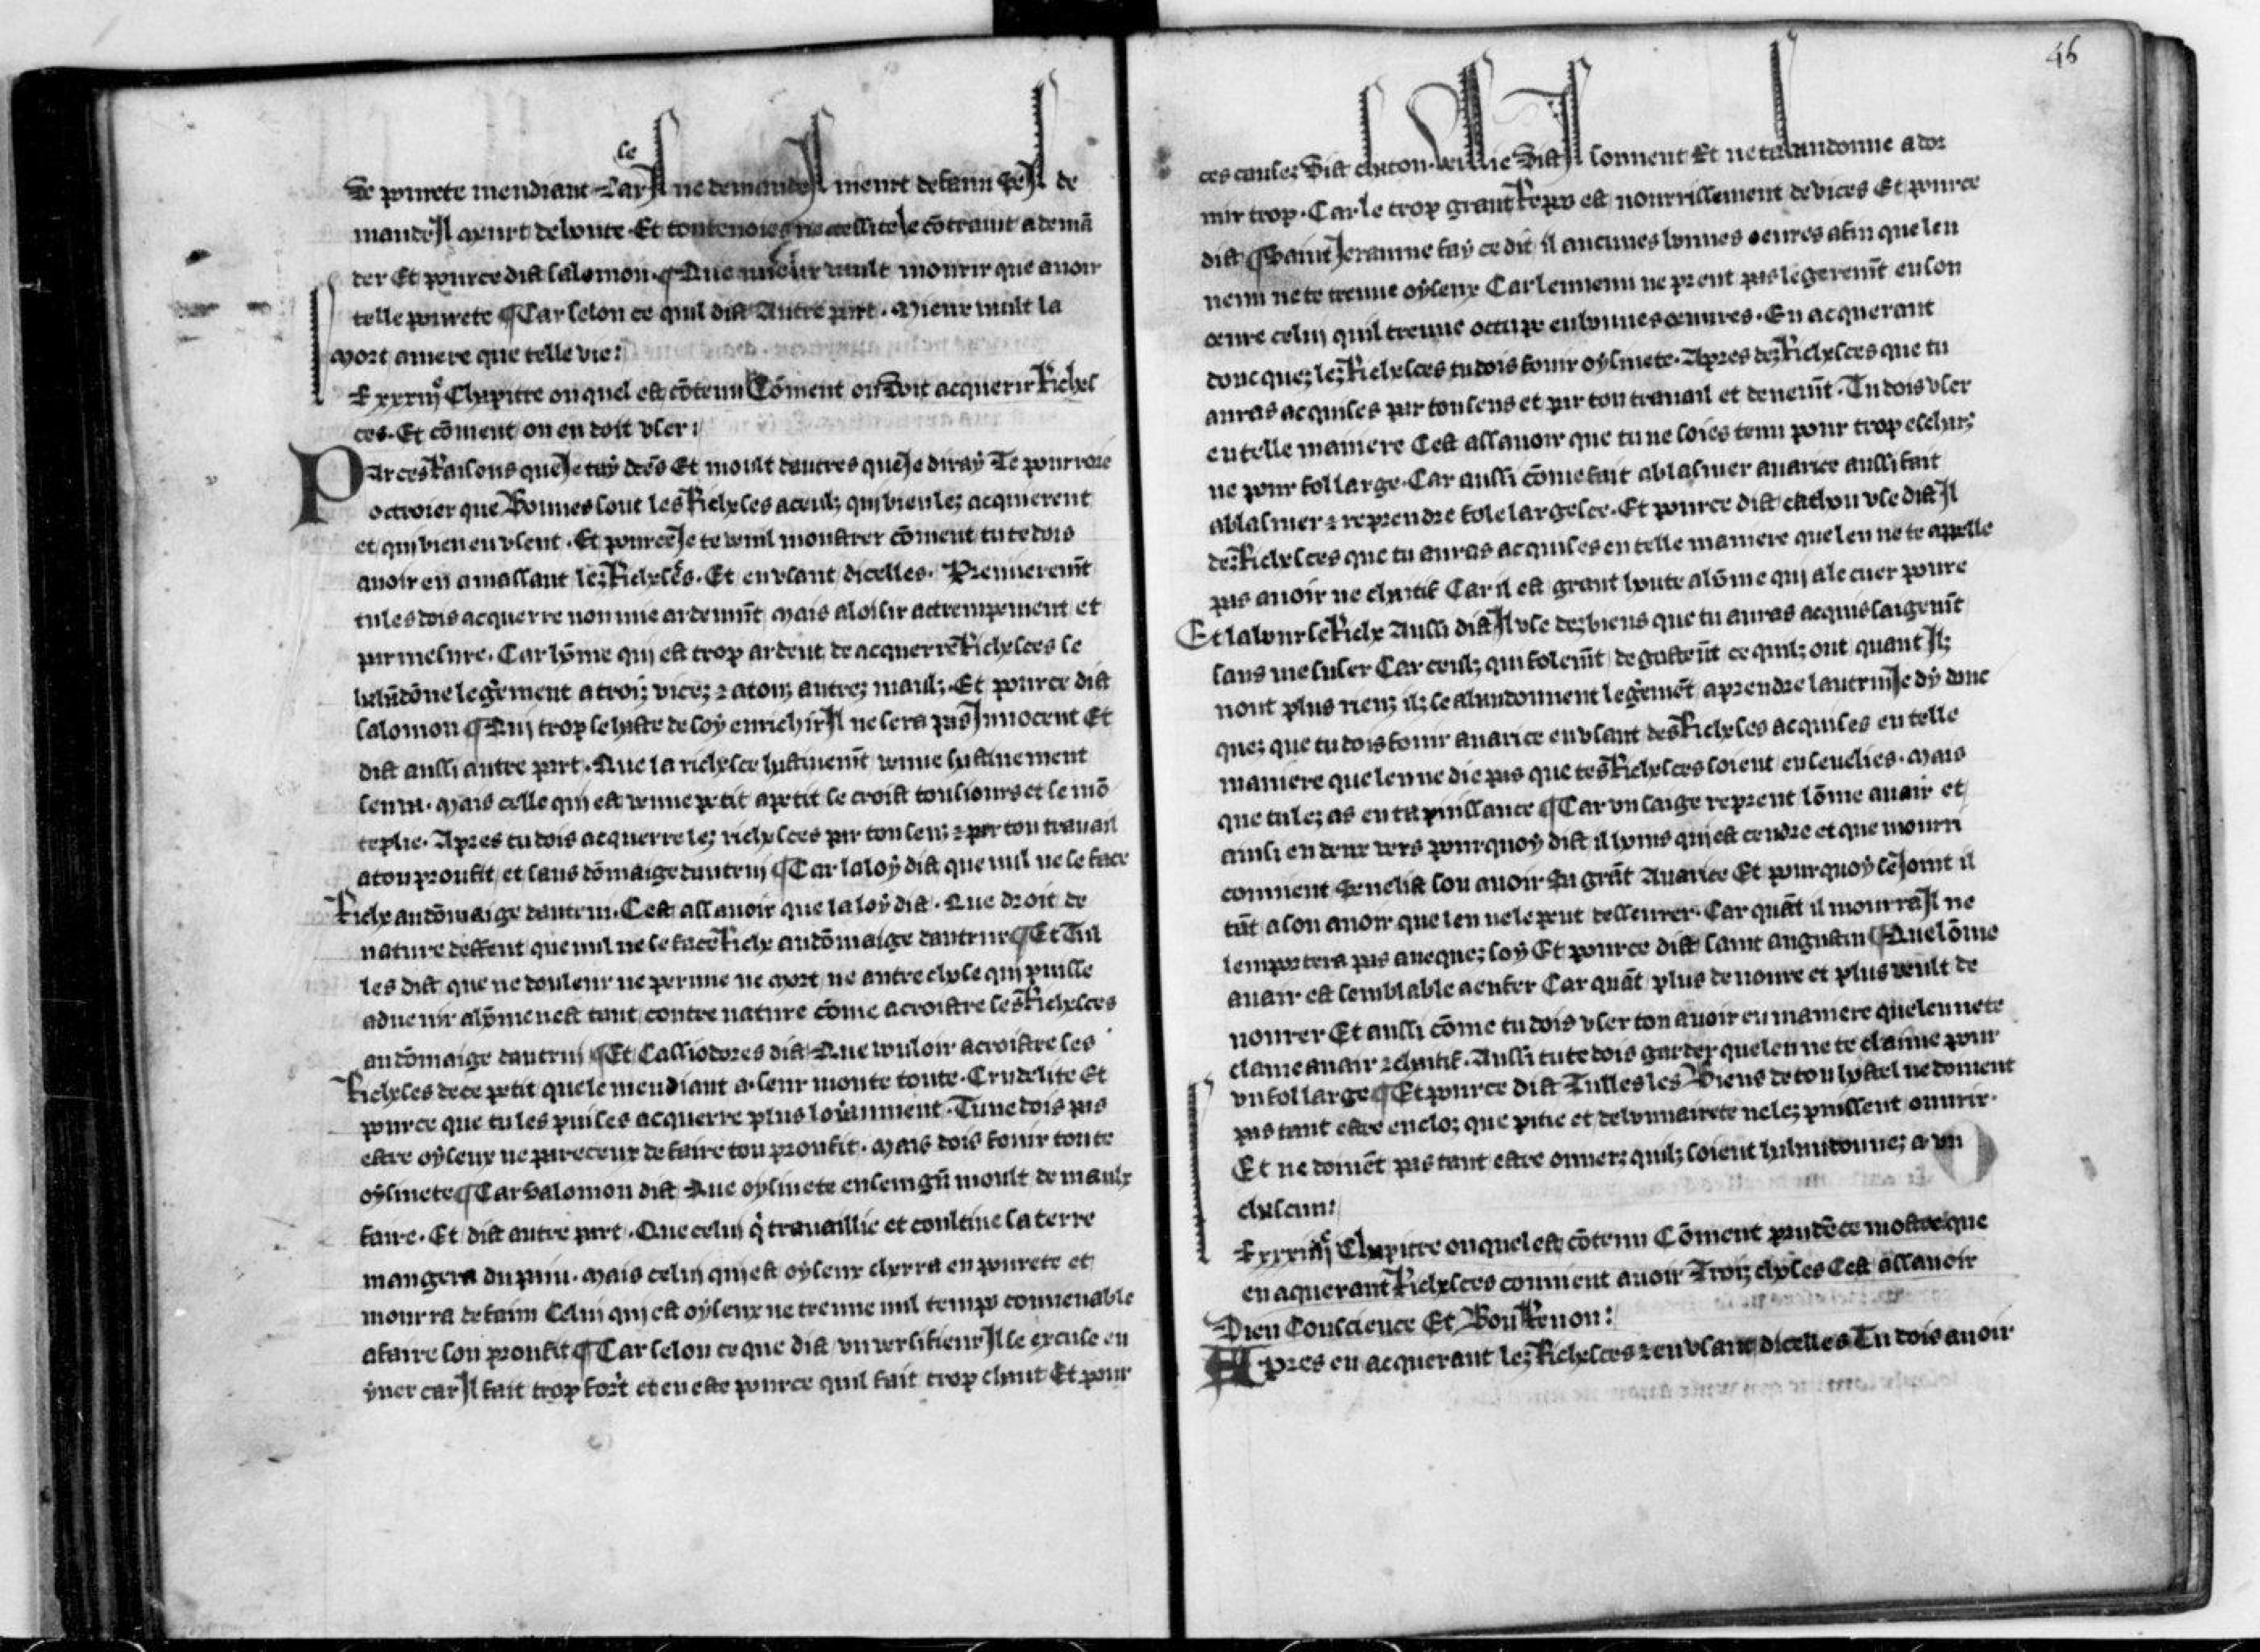 de pourete mendiant Car se Il ne demande Il meurt de faim Se Il de
mande Il meurt de honte. Et touteuoies necessite le cõtraint a demã
der Et pource dist salomon. ¶ Que mieulx vault mourir que auoir
telle pourete ¶ Car selon ce quil dist Autre part. Mieux vault la
Mort amere que telle vie:
xxxiijᵉ Chapitre ou quel est cõtenu Cõment on doit acquerir Riches
ces. Et cõment on en doit vser:
Par ces Raisons que Je tay dc̃es Et moult dautres que Je diray Te pourroie
octroier que Bonnes sont les Richeses a ceulz qui bien lez acquierent
et qui bien en vsent. Et pource Je te vueil monstrer cõment tu te dois
auoir en amassant lez Richeses. Et en vsant dicelles. Premieremt̃
tu les dois acquerre non mie ardemmt̃ Mais a loisir actrempement et
par mesure. Car lõme qui est trop ardent de acquerre Richesces se
habãdõne legerement a troiz vicez ⁊ a touz autrez maulz. Et pource dist
salomon ¶ Qui trop se haste de soy enrichir Il ne sera pas Innocent Et
dist aussi autre part. Que la richesce hastiuemt̃ venue hastiuement
senva. Mais celle qui est venue petit a petit se croist tousiours et se mõ
teplie. Apres tu dois acquerre lez richesces par ton senz ⁊ par ton trauail
a ton proufit et sans dõmaige dautrui ¶ Car la loy dist que nul ne se face
Riche au dõmaige dautrui. Cest assauoir que la loy dist. Que droit de
nature deffent que nul ne se face Riche au dõmaige dautrui ¶ Et Tul
les dist que ne douleur ne perinne ne Mort ne autre chose qui puisse
aduenir a lõme nest tant contre nature cõme acroistre ses Richesces
au dõmaige dautrui ¶ Et Cassiodores dist Que vouloir acroistre ses
Richeses de ce petit que le mendiant a. seurmonte toute. Crudelite Et
pource que tu les puises acquerre plus loyaument. Tu ne dois pas
estre oyseux ne pareceux de faire ton proufit. Mais dois fouir toute
oysiuete ¶ Car Salomon dist Que oysiuete enseingñ moult de maulx
faire. Et dist autre part. Que celui q̃ trauaillie et coultiue sa terre
mangera du pain. Mais celui qui est oyseux cherra en pourete et
mourra de faim Celui qui est oyseux ne treuue nul temps conuenable
a faire son proufit ¶ Car selon ce que dist vn versifieur Il se excuse en
yuer car Il fait trop fort et en este pource quil fait trop chaut Et pour
46
ces causez Dist chaton. veillie Dist Il souuent Et ne tabandonne a dor
mir trop. Car le trop grant Repos est nourrissement de vices Et pource
dist ¶ Saint Jeraume fay ce dit il aucunes bonnes oeures afin que len
nemi ne te treuue oyseux Car lennemi ne prent pas legeremt̃ en son
oeure celui quil treuue occupe en bonnes oeuures. En acquerant
doncquez lez Richesces tu dois fouir oysiuete. Apres dez Richesces que tu
auras acquises par ton sens et par ton trauail et deuemt̃. Tu dois vser
en telle maniere Cest assauoir que tu ne soies tenu pour trop escharz
ne pour fol large. Car aussi cõme fait a blasmer auarice aussi fait
a blasmer ⁊ reprendre fole largesce. Et pource dist cathon vse dist Il
dez Richesces que tu auras acquises en telle maniere que len ne te appelle
pas auoir ne chaitif Car il est grant honte a lõme qui a le cuer poure
Et la bourse Riche Aussi dist Il vse dez biens que tu auras acquis saigemt̃
sans mesuser Car ceulz qui folemt̃ degastent̃ ce quilz ont quant Ilz
nont plus rienz ilz se abandonnent legeremẽt a prendre lautrui Je dy donc
quez que tu dois fouir auarice en vsant des Richeses acquises en telle
maniere que len ne die pas que tes Richesces soient enseuelies. Mais
que tu lez as en ta puissance ¶ Car vn saige reprent lõme auair et
ainsi en deux vers pourquoy dist il homs qui est cendre et que mourri
conuient Seuelist son auoir En grãt Auarice Et pourquoy se Joint il
tãt a son auoir que len ne le peut desseurer. Car quãt il mourra Il ne
lemportera pas auecquez soy Et pource dist saint augustin ¶ Que lõme
auair est semblable a enfer Car quãt plus deuoure et plus veult de
uourer Et aussi cõme tu dois vser ton auoir en maniere que len ne te
clame auair ⁊ chaitif. Aussi tu te dois garder que len ne te claime pour
vn fol large ¶ Et pource dist Tulles les Biens de ton hostel ne doiuent
pas tant estre encloz que pitie et debonnairete ne lez puissent ouurir.
Et ne doiuẽt pas tant estre ouuerz quilz soient habandonnez a vn
chascun:
xxxiiijᵉ Chapitre ou quel est cõtenu Cõment prudẽce mostre que
en aquerant Richesces conuient auoir Troiz choses Cest assauoir
Dieu Conscience Et Bon Renon:
Apres en acquerant lez Richesces ⁊ en vsant dicelles Tu dois auoir